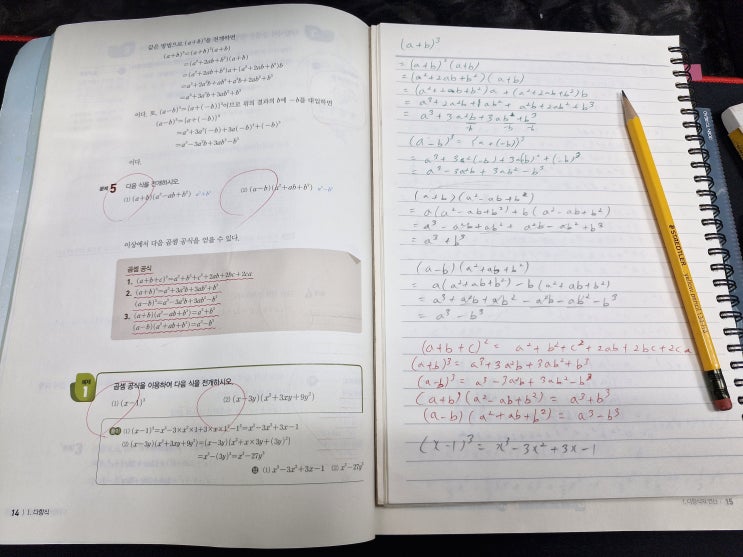 같은 방법으로 (a+b)³을 전개하면
(a+b)³=(a+b)²(a+b)
=(a²+2ab+b²)(a+b)
=(a²+2ab+b²)a+(a²+2ab+b²)b
=a³+2a²b+ab²+a²b+2ab²+b³
=a³+3a²b+3ab²+b³
이다. 또, (a-b)³={a+(-b)}³이므로 위의 결과의 b에 -b를 대입하면
(a-b)³={a+(-b)}³
=a³+3a²(-b)+3a(-b)²+(-b)³
=a³-3a²b+3ab²-b³
이다.
문제 5 다음 식을 전개하시오.
(1) (a+b)(a²-ab+b²) a³+b³ (2) (a-b)(a²+ab+b²) a³-b³
이상에서 다음 곱셈 공식을 얻을 수 있다.
곱셈 공식
1. (a+b+c)²=a²+b²+c²+2ab+2bc+2ca
2. (a+b)³=a³+3a²b+3ab²+b³
(a-b)³=a³-3a²b+3ab²-b³
3. (a+b)(a²-ab+b²)=a³+b³
(a-b)(a²+ab+b²)=a³-b³
예제 1
곱셈 공식을 이용하여 다음 식을 전개하시오.
(1) (x-1)³ (2) (x-3y)(x²+3xy+9y²)
(1) (x-1)³=x³-3×x²×1+3×x×1²-1³=x³-3x²+3x-1
(2) (x-3y)(x²+3xy+9y²)=(x-3y){x²+x×3y+(3y)²}
=x³-(3y)³=x³-27y³
답 (1) x³-3x²+3x-1 (2) x³-27y³
14 Ⅰ. 다항식
(a+b)³
=(a+b)²(a+b)
=(a²+2ab+b²)(a+b)
=(a²+2ab+b²)a+(a²+2ab+b²)b
=a³+2a²b+ab²+a²b+2ab²+b³
=a³+3a²b+3ab²+b³
-b -b -b
(a-b)³={a+(-b)}³
=a³+3a²(-b)+3a(-b)²+(-b)³
=a³-3a²b+3ab²-b³
(a+b)(a²-ab+b²)
=a(a²-ab+b²)+b(a²-ab+b²)
=a³-a²b+ab²+a²b-ab²+b³
=a³+b³
(a-b)(a²+ab+b²)
=a(a²+ab+b²)-b(a²+ab+b²)
=a³+a²b+ab²-a²b-ab²-b³
=a³-b³
(a+b+c)²=a²+b²+c²+2ab+2bc+2ca
(a+b)³=a³+3a²b+3ab²+b³
(a-b)³=a³-3a²b+3ab²-b³
(a+b)(a²-ab+b²)=a³+b³
(a-b)(a²+ab+b²)=a³-b³
(x-1)³=x³-3x²+3x-1
STAEDTLER
15